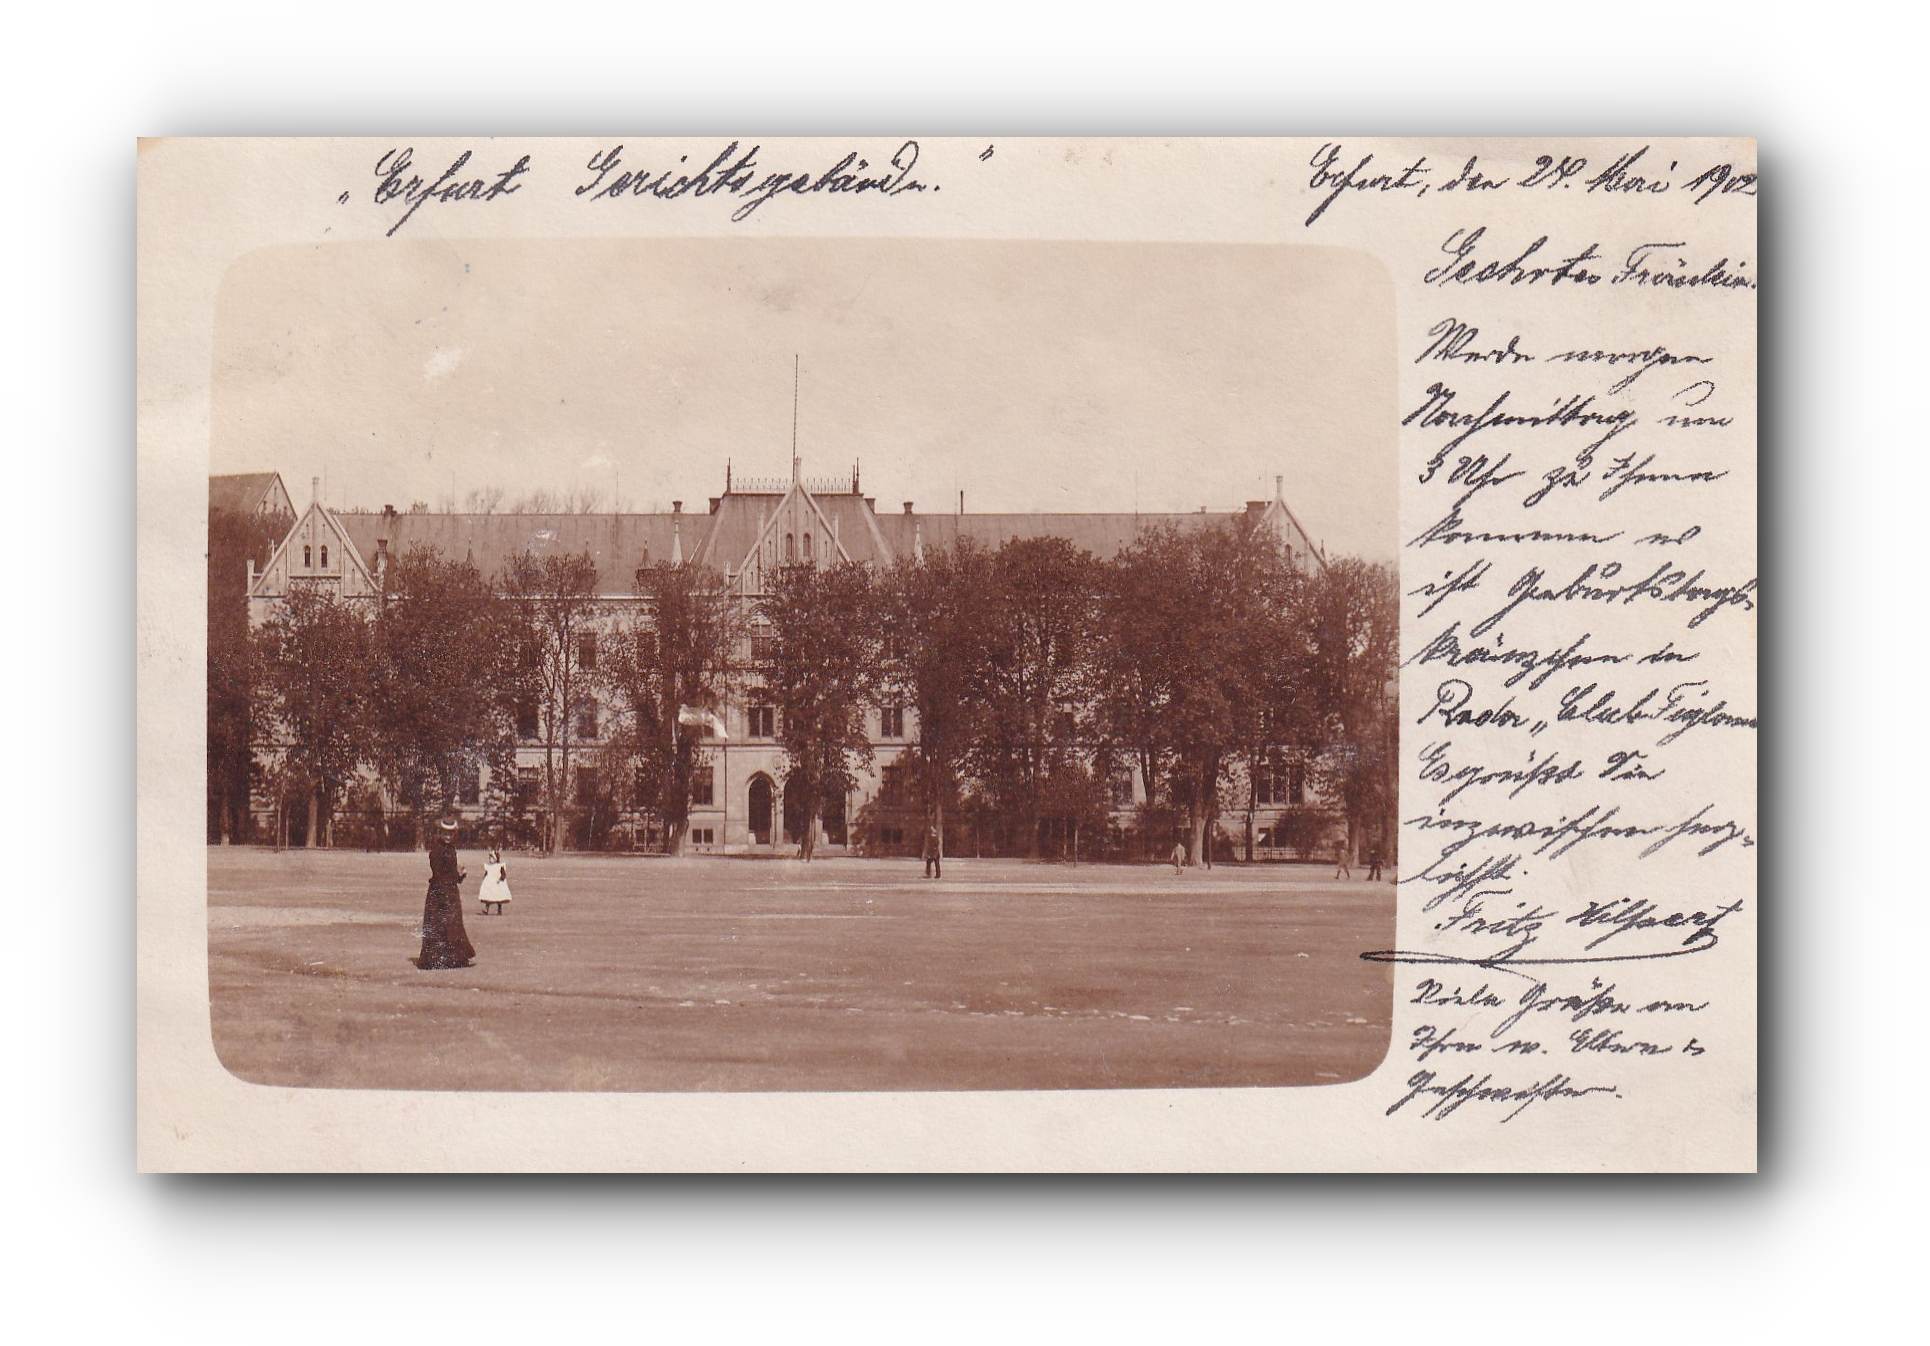 „Erfurt Gerichtsgebäude.“
Erfurt, den 24. Mai 1902
Geehrtes Fräulein.
Werde morgen
Nachmittag um
3 Uhr zu Ihnen
kommen es
ist Geburtstags-
kränzchen in
„Club
Es grüßt Sie
inzwischen herz-
lichst.
Fritz Hilpert
Viele Grüße an
Ihre w. Eltern &
Geschwister.